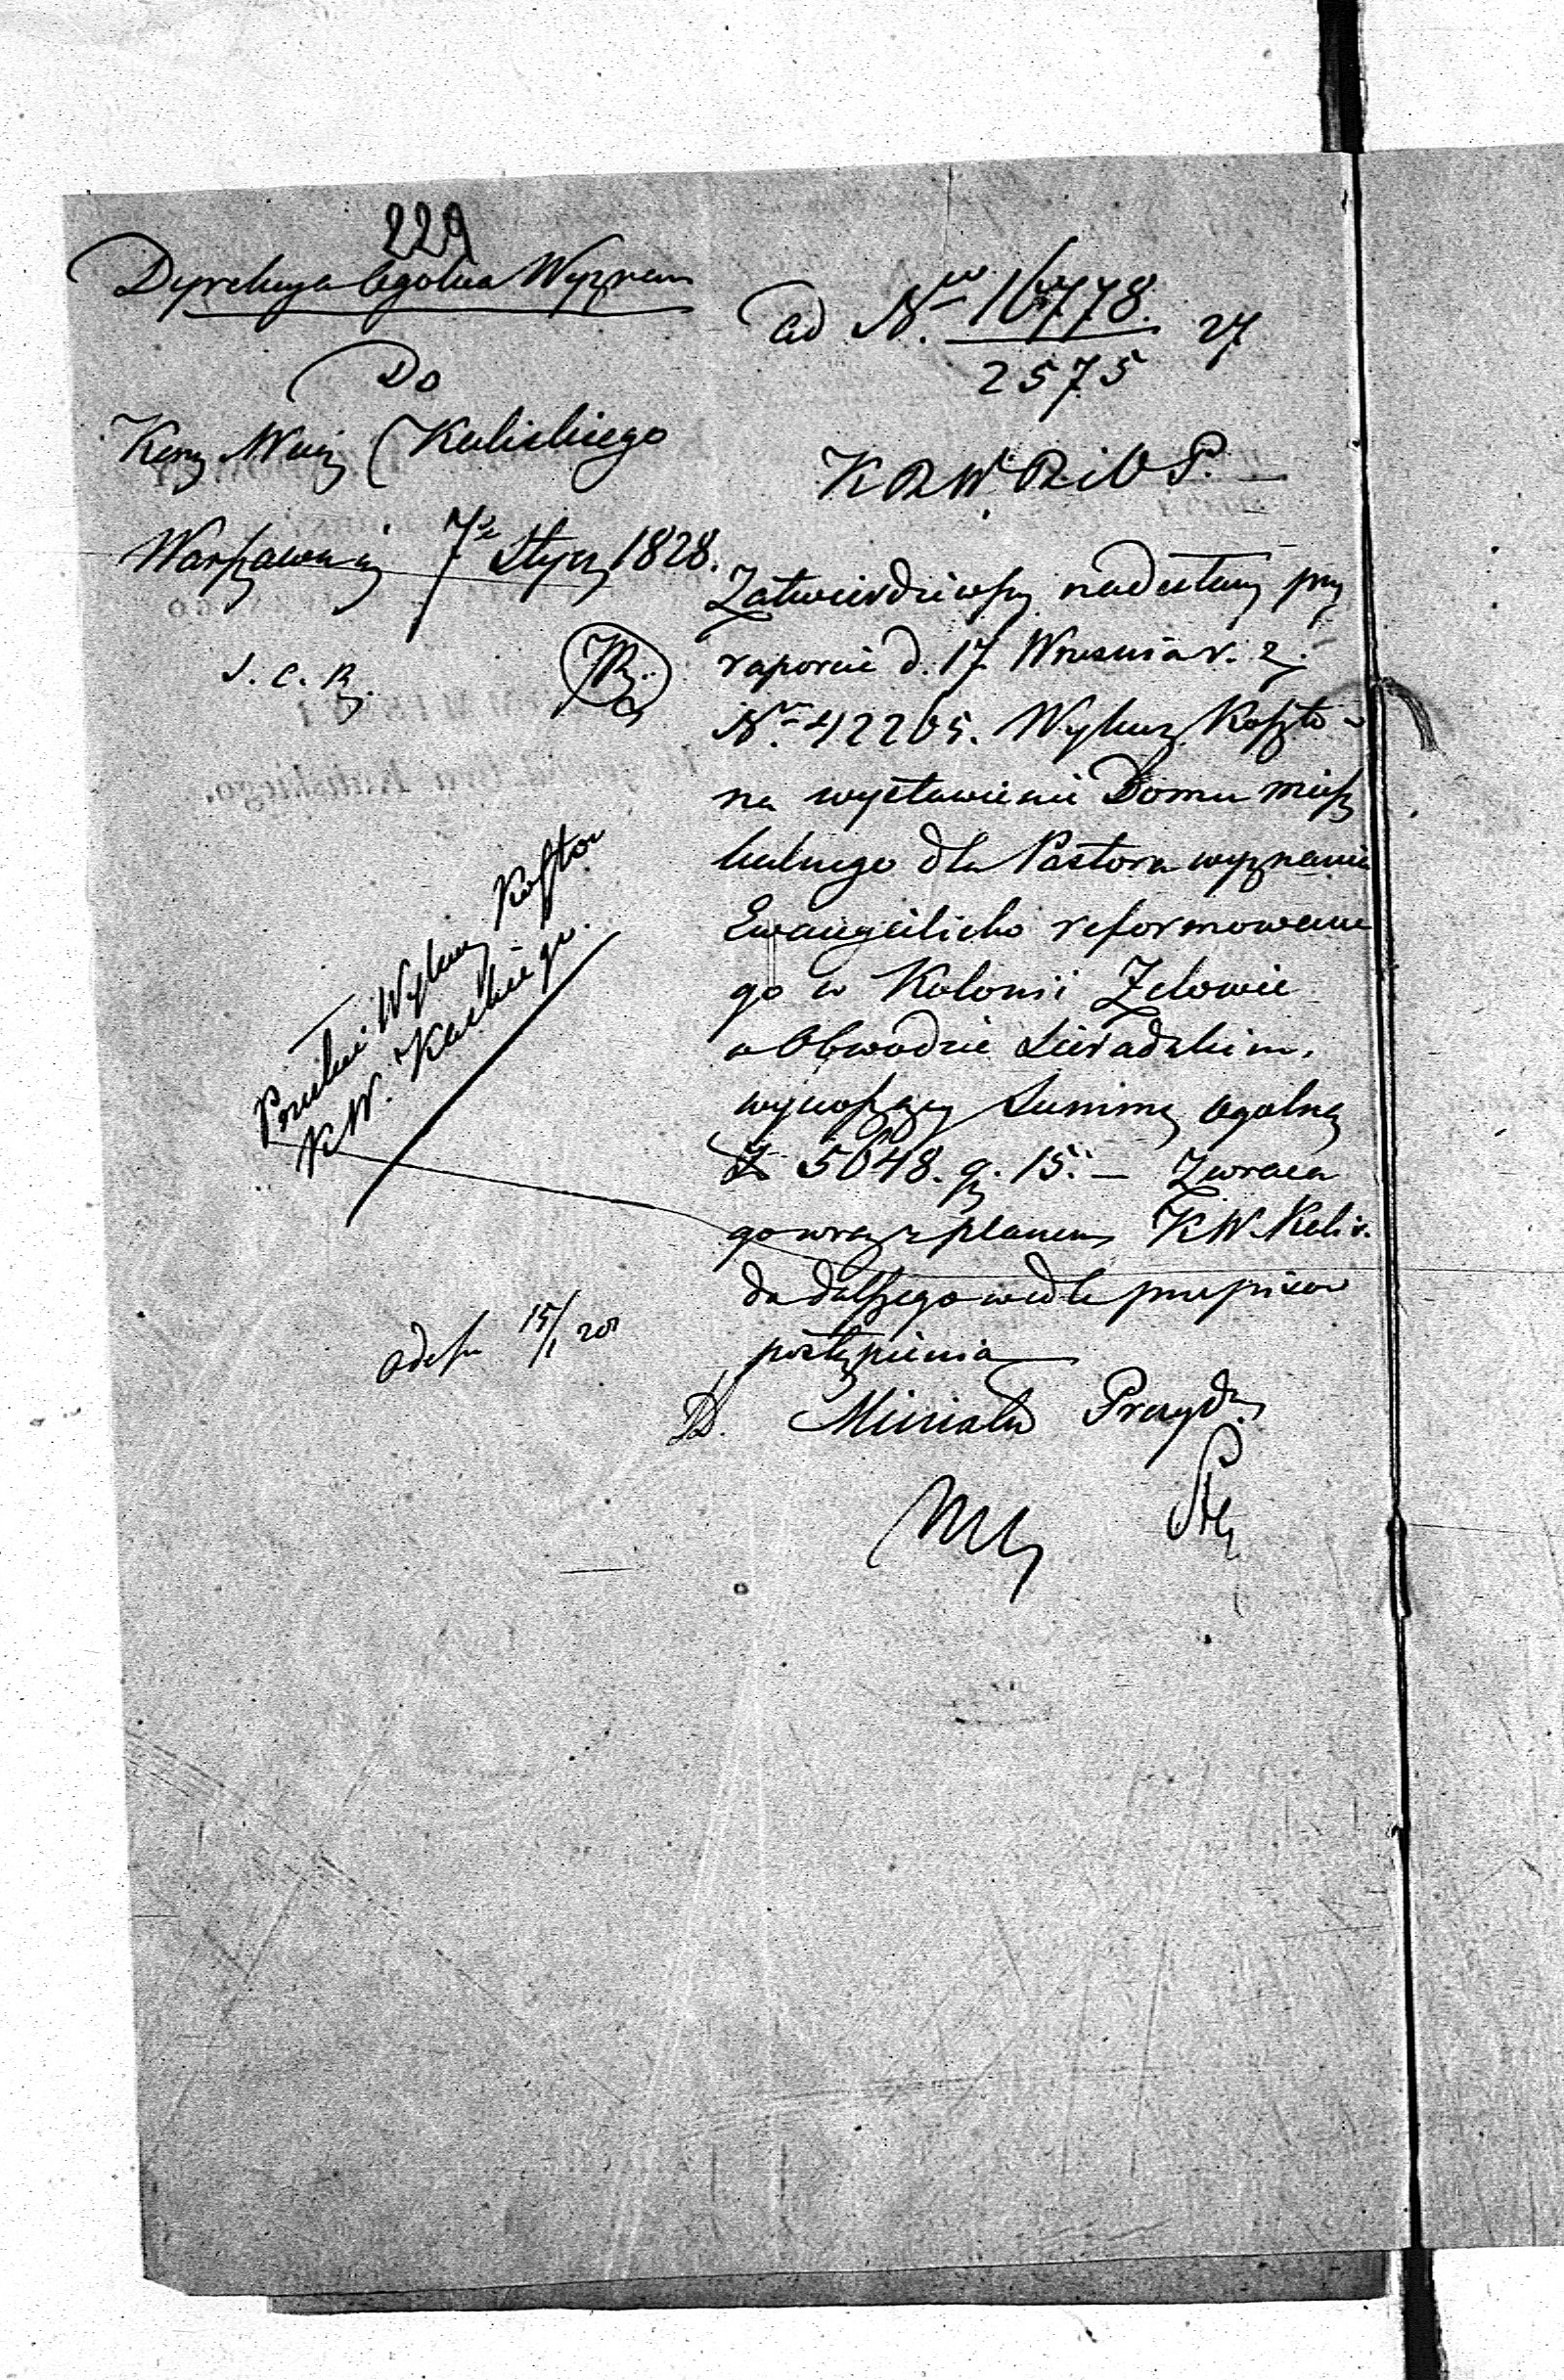 229
Dyrekcya Ogolna Wyznan
Do
Kom Woj Kaliskiego
Warszawa d. 7 Stycz 1828.
ad Nro 16778. 27
2575
K R W R i O P.
Zatwierdziwszy nadesłany przy
raporcie d. 17 Wrzesnia r. z.
Nro 42265. Wykaz Koszto
na wystawienie Domu miesz
kalnego dla Pastora wyznania
Ewangelicko reformowane
go w Kolonii Zelowie
w Obwodzie Sieradzkim,
wynoszący Summę ogolną
Zł 5048. g. 15. — Zwraca
go wraz z planem K W. Kalis.
do dalszego wedle przepisow
postąpienia
Ministr Prezyd.
Wykaz Kosztow
K W. Kaliskiego.
15/1